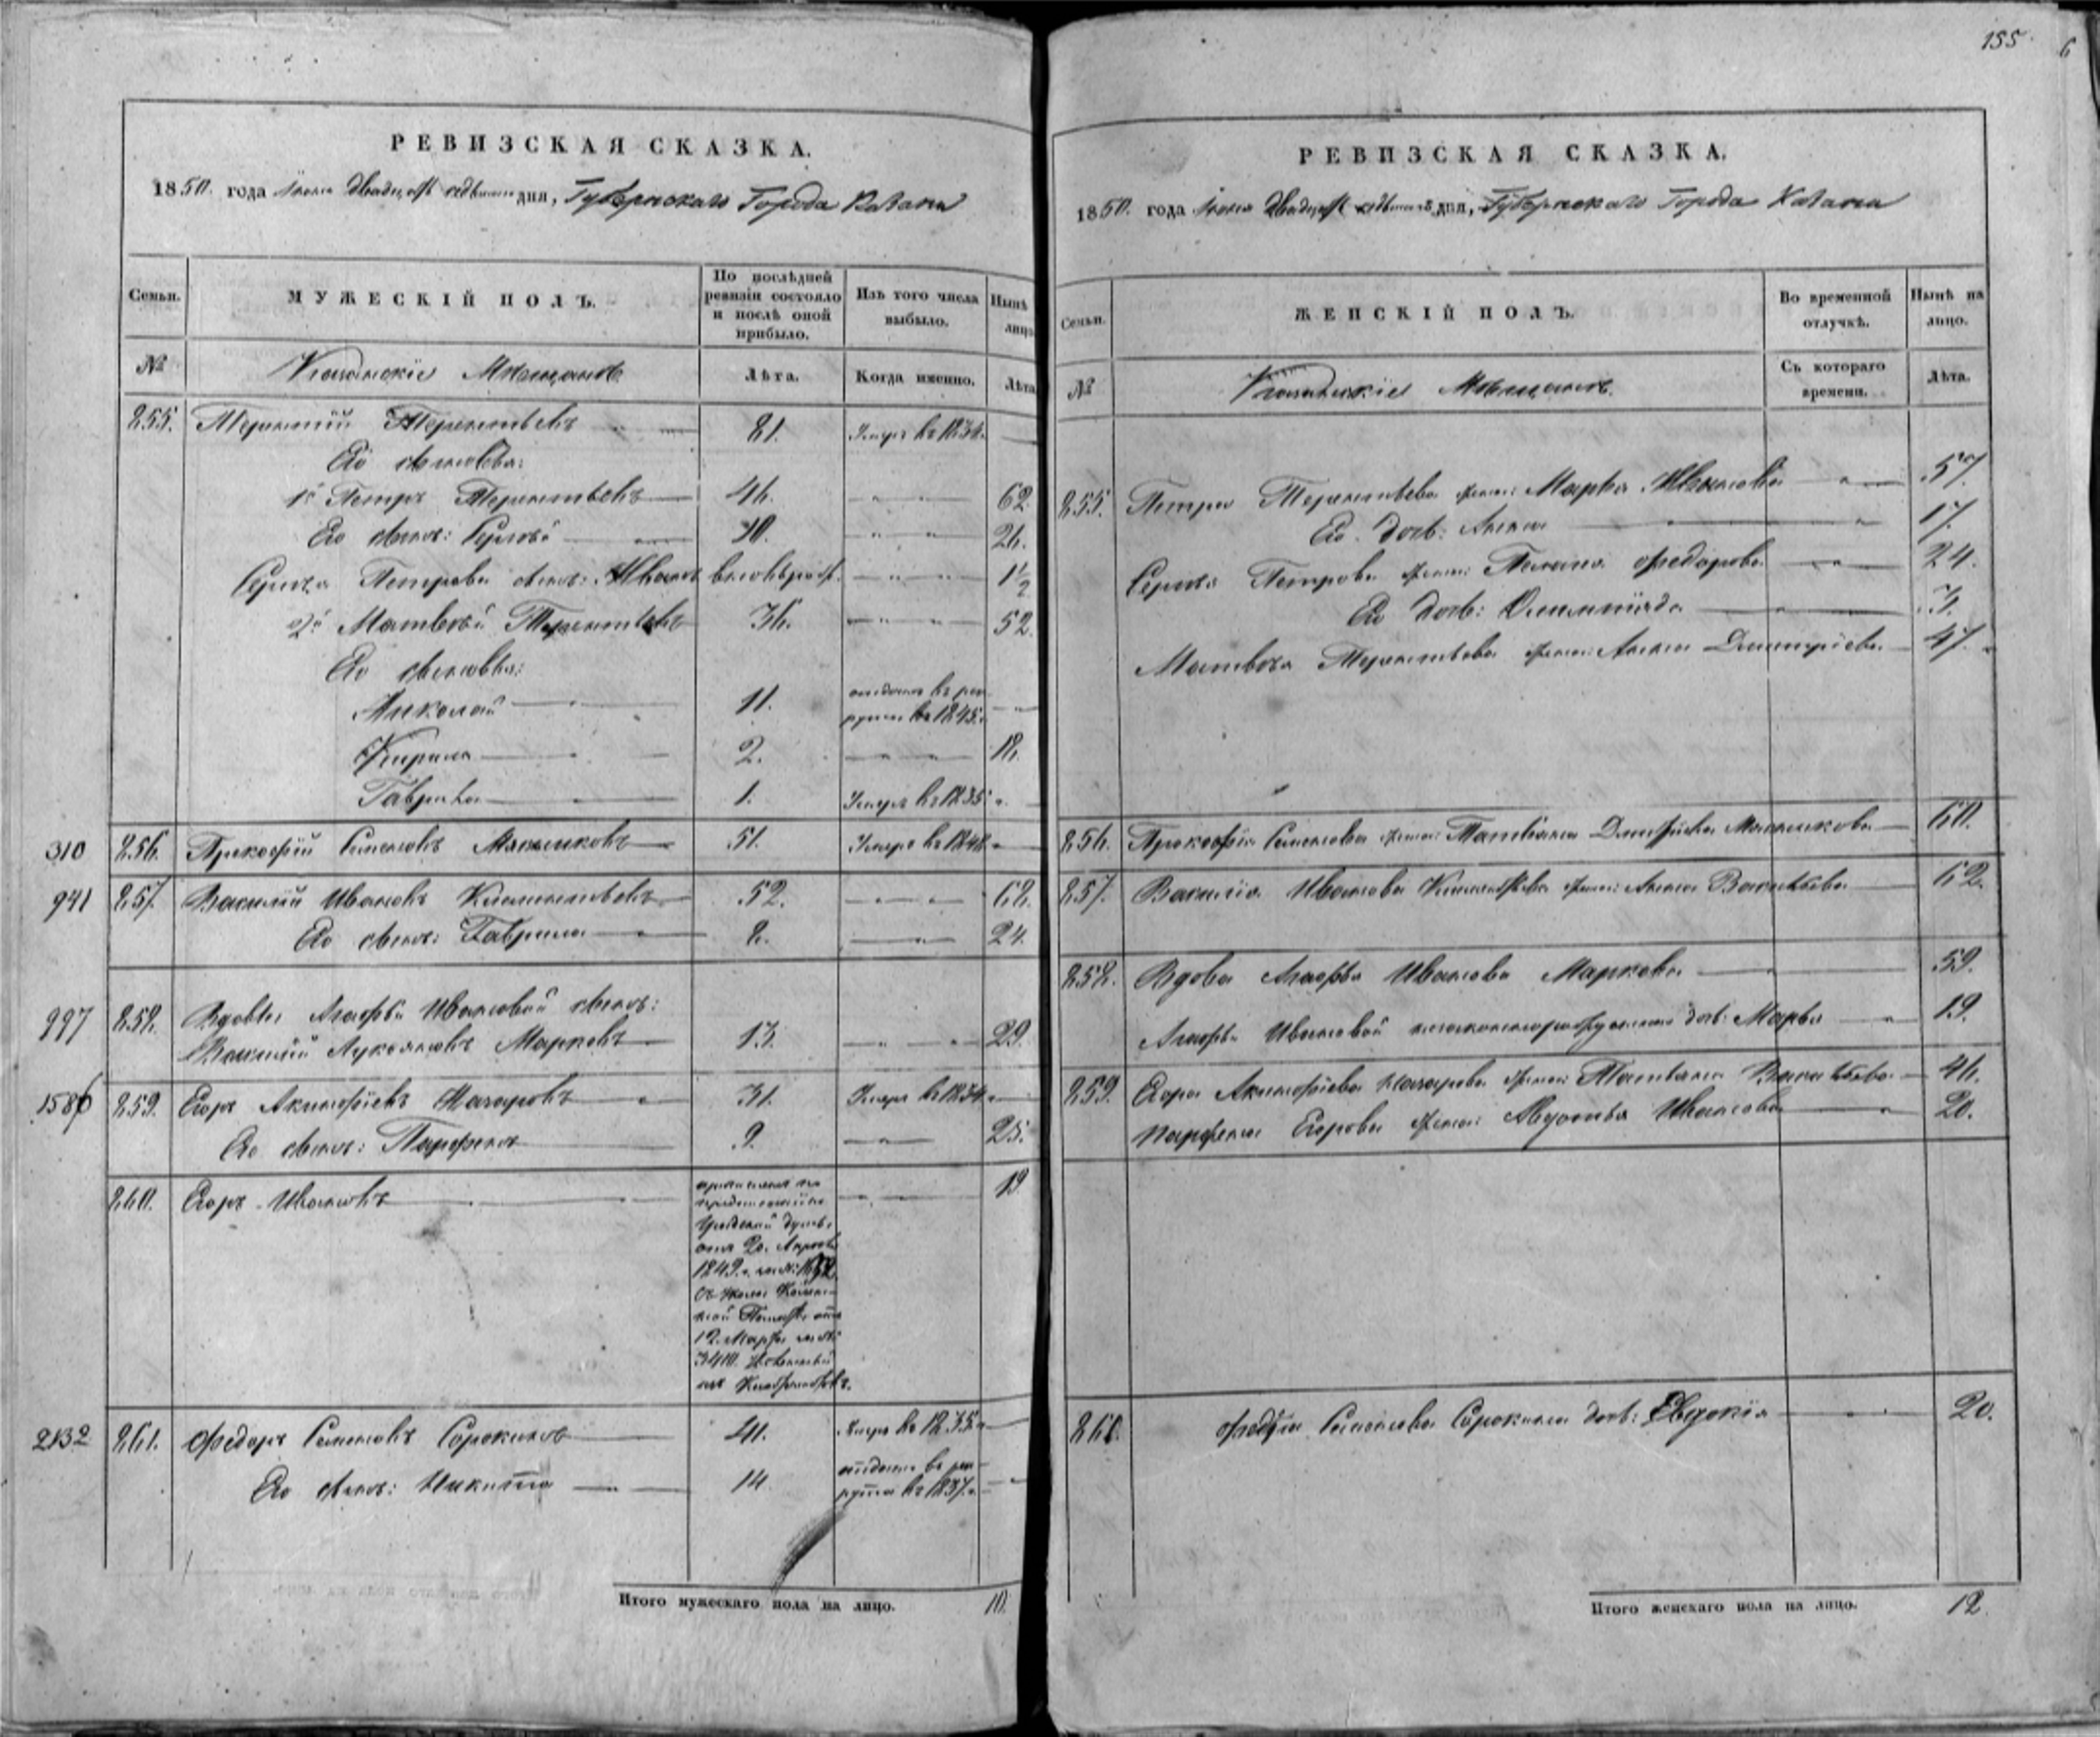 155
6
РЕВИЗСКАЯ СКАЗКА.
1850. года Іюня двадцать седьмаго дня, Губернскаго Города Казани
Семьи. МУЖЕСКІЙ ПОЛЪ. По послѣдней ревизіи состояло и послѣ оной прибыло. Изъ того числа выбыло. Нынѣ на лицо
№ Казанскіе Мещане Лѣта. Когда именно. Лѣта
255. Терентій Терентьевъ 81. Умеръ въ 1834.
Его сыновья:
1й Петръ Терентьевъ 46. 62
Его сынъ: Сергѣй 10. 26.
Сергѣя Петрова сынъ: Иванъ вновьрожд. 1 1/2
2й Матвѣй Терентьевъ 36. 52.
Его сыновья:
Николай 11. отданъ въ рекруты въ 1845.
Кирила 2. 18.
Гаврила 1. Умеръ въ 1835.
310 256. Прокофій Семеновъ Мясниковъ 51. Умеръ въ 1848
941 257. Василій Ивановъ Климентьевъ 52. 68.
Его сынъ: Гаврила 8. 24.
997 258. Вдовы Агафьи Ивановой сынъ:
Василій Лукояновъ Марковъ 13. 29.
1586 259. Егоръ Акинфіевъ Назаровъ 31. Умеръ въ 1834.
Его сынъ: Парфенъ 9. 25.
260. Егоръ Ивановъ 19
Градской думы,
отъ 20. Апрѣля
1849.
12. Марта за №:
3410.
2132 261. Федоръ Семеновъ Сорокинъ 41. Умеръ въ 1835.
Его сынъ: Никита 14. отданъ въ рекруты въ 1837.
Итого мужескаго пола на лицо. 10.
РЕВИЗСКАЯ СКАЗКА.
1850. года Іюня двадцать седьмаго дня, Губернскаго Города Казани
Семьи. ЖЕНСКІЙ ПОЛЪ. Во временной отлучкѣ. Нынѣ на лицо.
№ Казанскіе Мещане. Съ котораго времени. Лѣта.
255. Петра Терентьева жена: Марфа Иванова 57.
Его дочь: Анна 17.
Сергѣя Петрова жена: Пелагея Федорова 24.
Его дочь: Олимпіяда 3.
Матвѣя Терентьева жена: Анна Дмитріева 47.
256. Прокофія Семенова жена: Татьяна Дмитріева Мясникова 60.
257. Василія Иванова Климентьева жена: Анна Васильева 62.
258. Вдова Агафья Иванова Маркова 59.
Агафьи Ивановой незаконнорожденная дочь Марья 19.
259. Егора Акинфіева Назарова жена: Татьяна Васильева 46.
Парфена Егорова жена: Авдотья Иванова 20.
261. Федора Семенова Сорокина дочь: Евдокія 20.
Итого женскаго пола на лицо. 12.